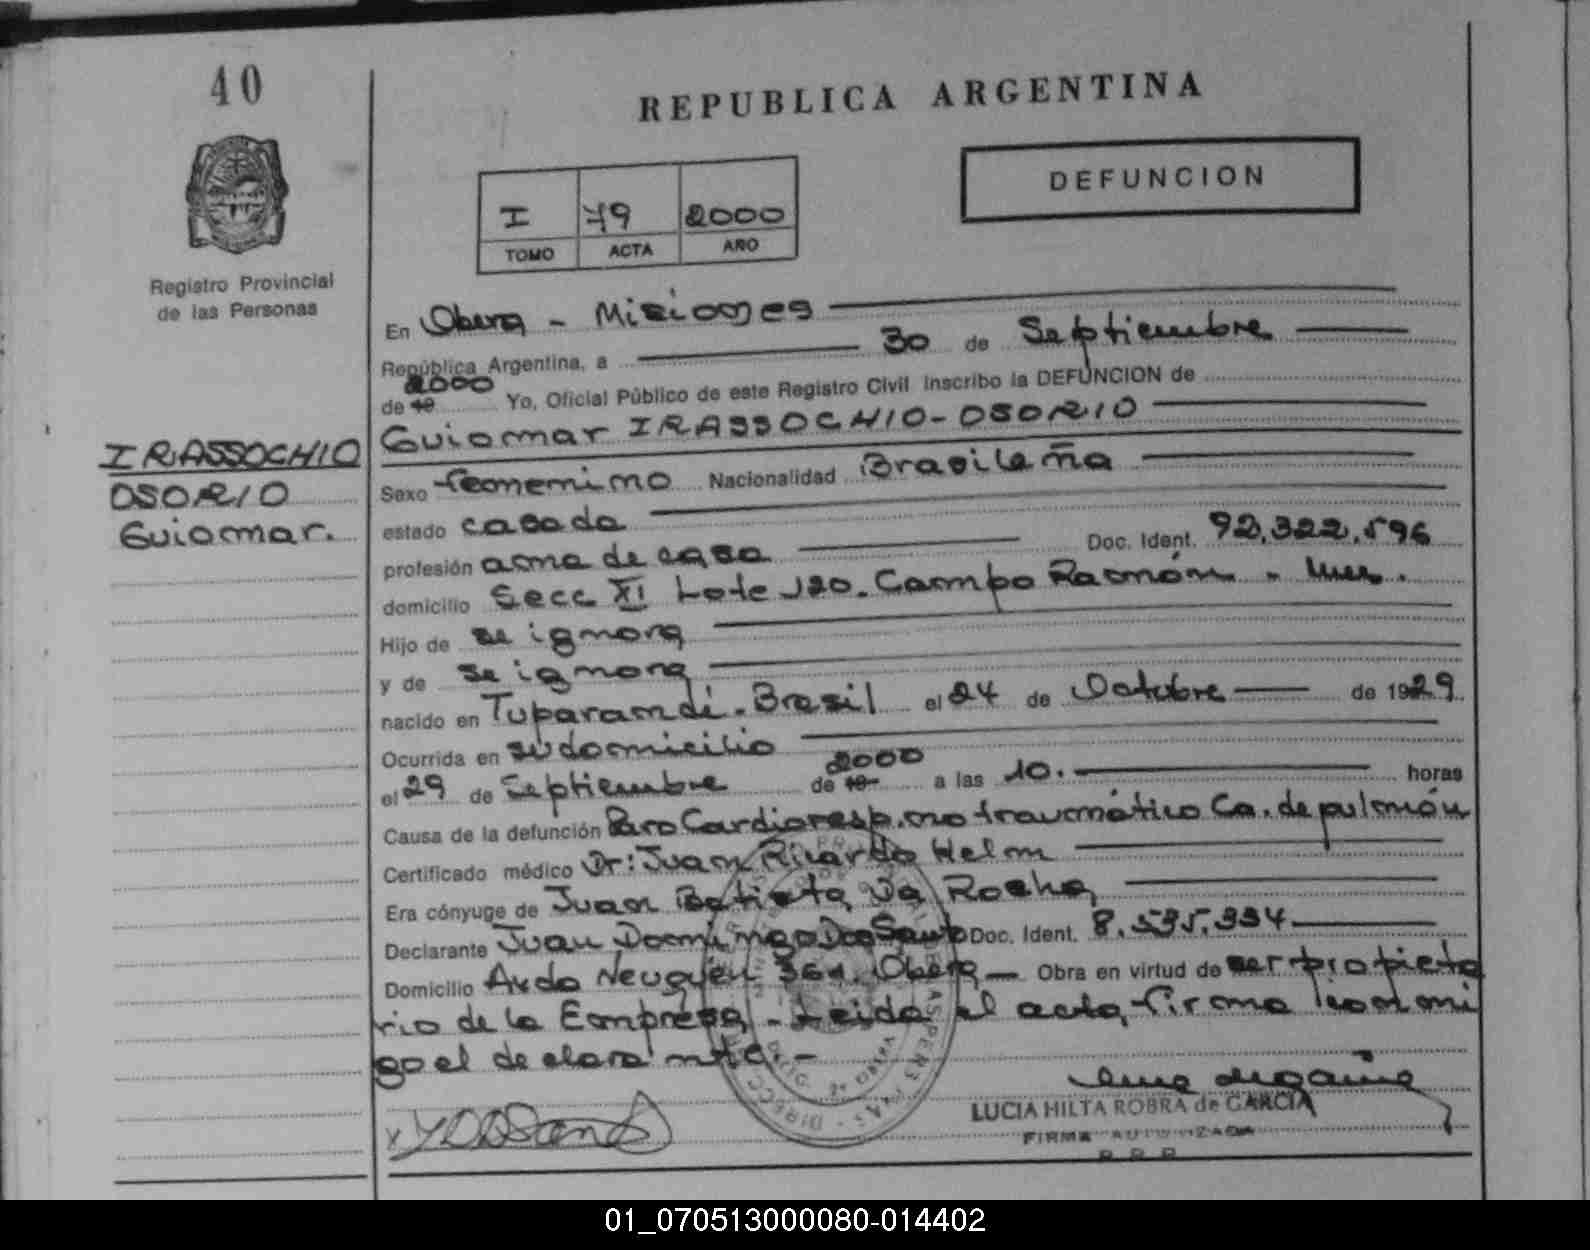 40
REPUBLICA ARGENTINA
DEFUNCION
I 79 2000
TOMO ACTA AÑO
Registro Provincial
de las Personas
En Obera - Misiones
República Argentina, a 30 de Septiembre
2000
de 19 Yo, Oficial Público de este Registro Civil inscribo la DEFUNCION de
Guiomar IRASSOCHIO-OSORIO
IRASSOCHIO
OSORIO
Guiomar.
Sexo femenino Nacionalidad Brasileña
estado casada
profesión ama de casa Doc. Ident. 92.322.596
domicilio Secc XI Lote 120. Campo Ramón -
Hijo de se ignora
y de se ignora
nacido en Tuparandi. Brasil el 24 de Octubre de 1929
Ocurrida en su domicilio
2000
el 29 de Septiembre de 19 a las 10. horas
Causa de la defunción Paro Cardioresp. no traumático Ca. de pulmón
Certificado médico Dr: Juan Ricardo Helm
Era cónyuge de Juan Batista Da Rocha
Declarante Juan Domingo Dos Santo Doc. Ident. 8.535.334
Domicilio Avda Neuquén 361. Obera Obra en virtud de ser propieta
rio de la Empresa - Leida el acta, firma conmi
go el declarante. -
LUCIA HILTA ROBRA de GARCIA
FIRMA AUTORIZADA
R.R.P.
01_070513000080-014402